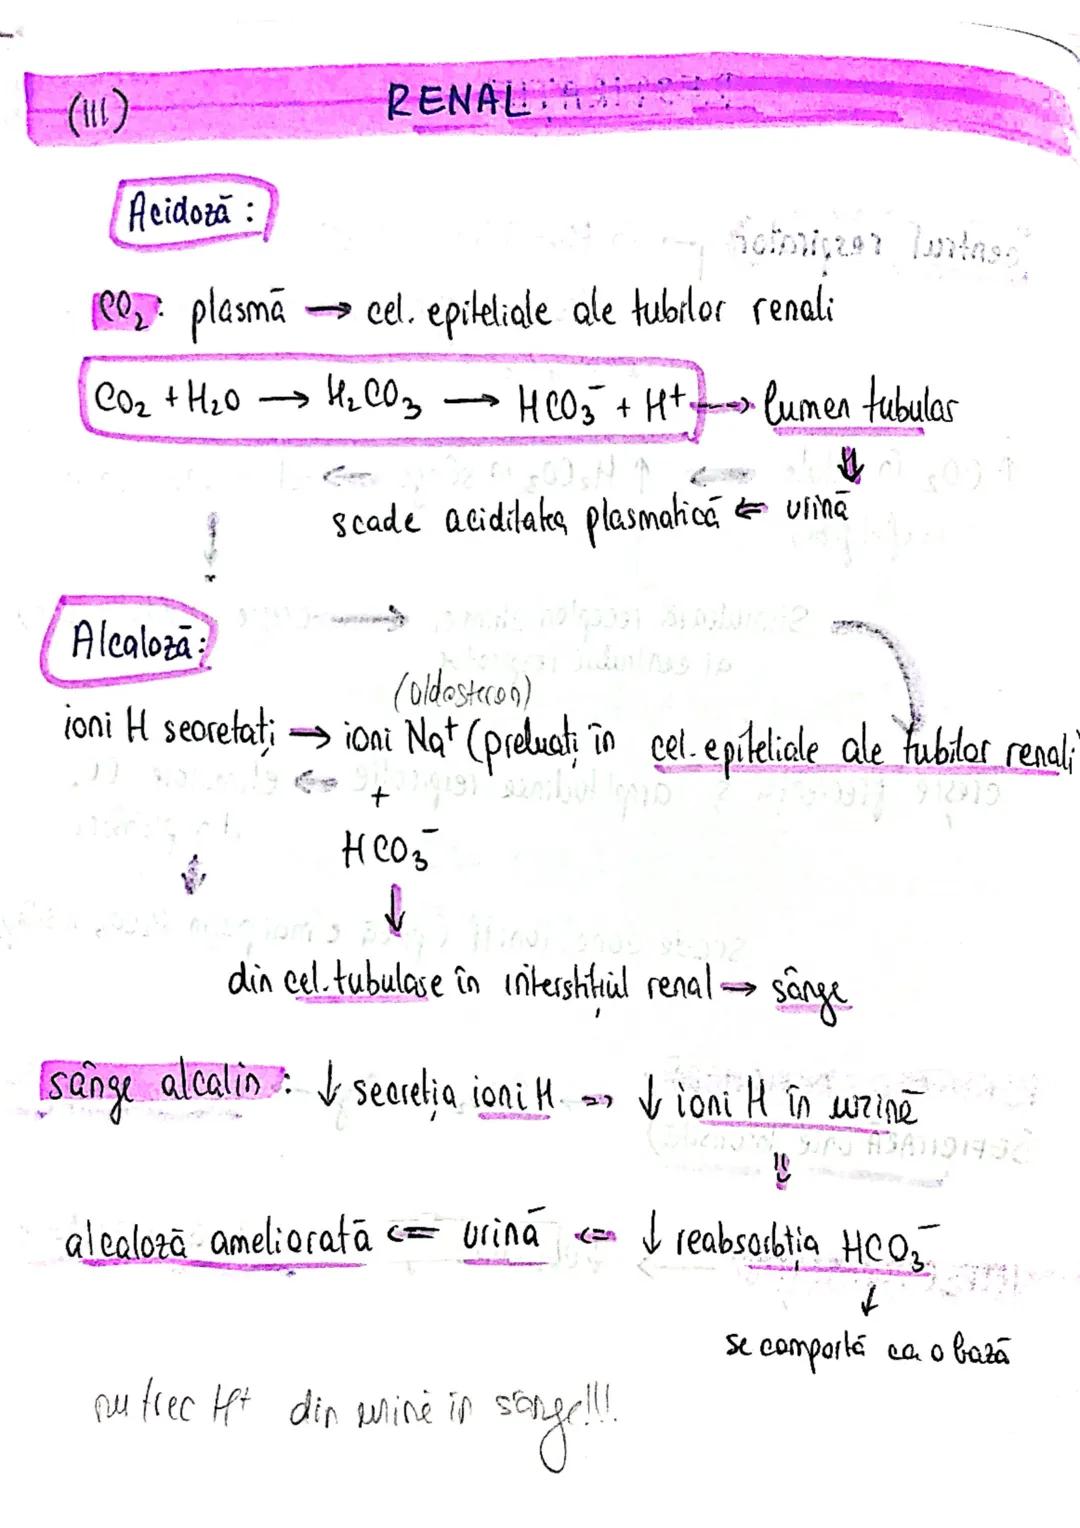 (III) RENAL
Acidoză:
CO₂: plasmă → cel. epiteliale ale tubilor renali
CO₂ + H₂O → H₂CO₃ → HCO₃⁻ + H⁺ → lumen tubular
⇓
scade aciditatea plasmatică ⇐ urină
Alcaloză:
(aldosteron)
ioni H secretați → ioni Na⁺ (preluați în cel. epiteliale ale tubilor renali)
+
HCO₃⁻
↓
din cel. tubulare în interstițiul renal → sânge
sânge alcalin: ↓ secreția ioni H => ↓ ioni H în urină
⇓
alcaloză ameliorată <= urină <= ↓ reabsorbția HCO₃⁻
↓
se comportă ca o bază
nu trec H⁺ din urină în sânge!!!